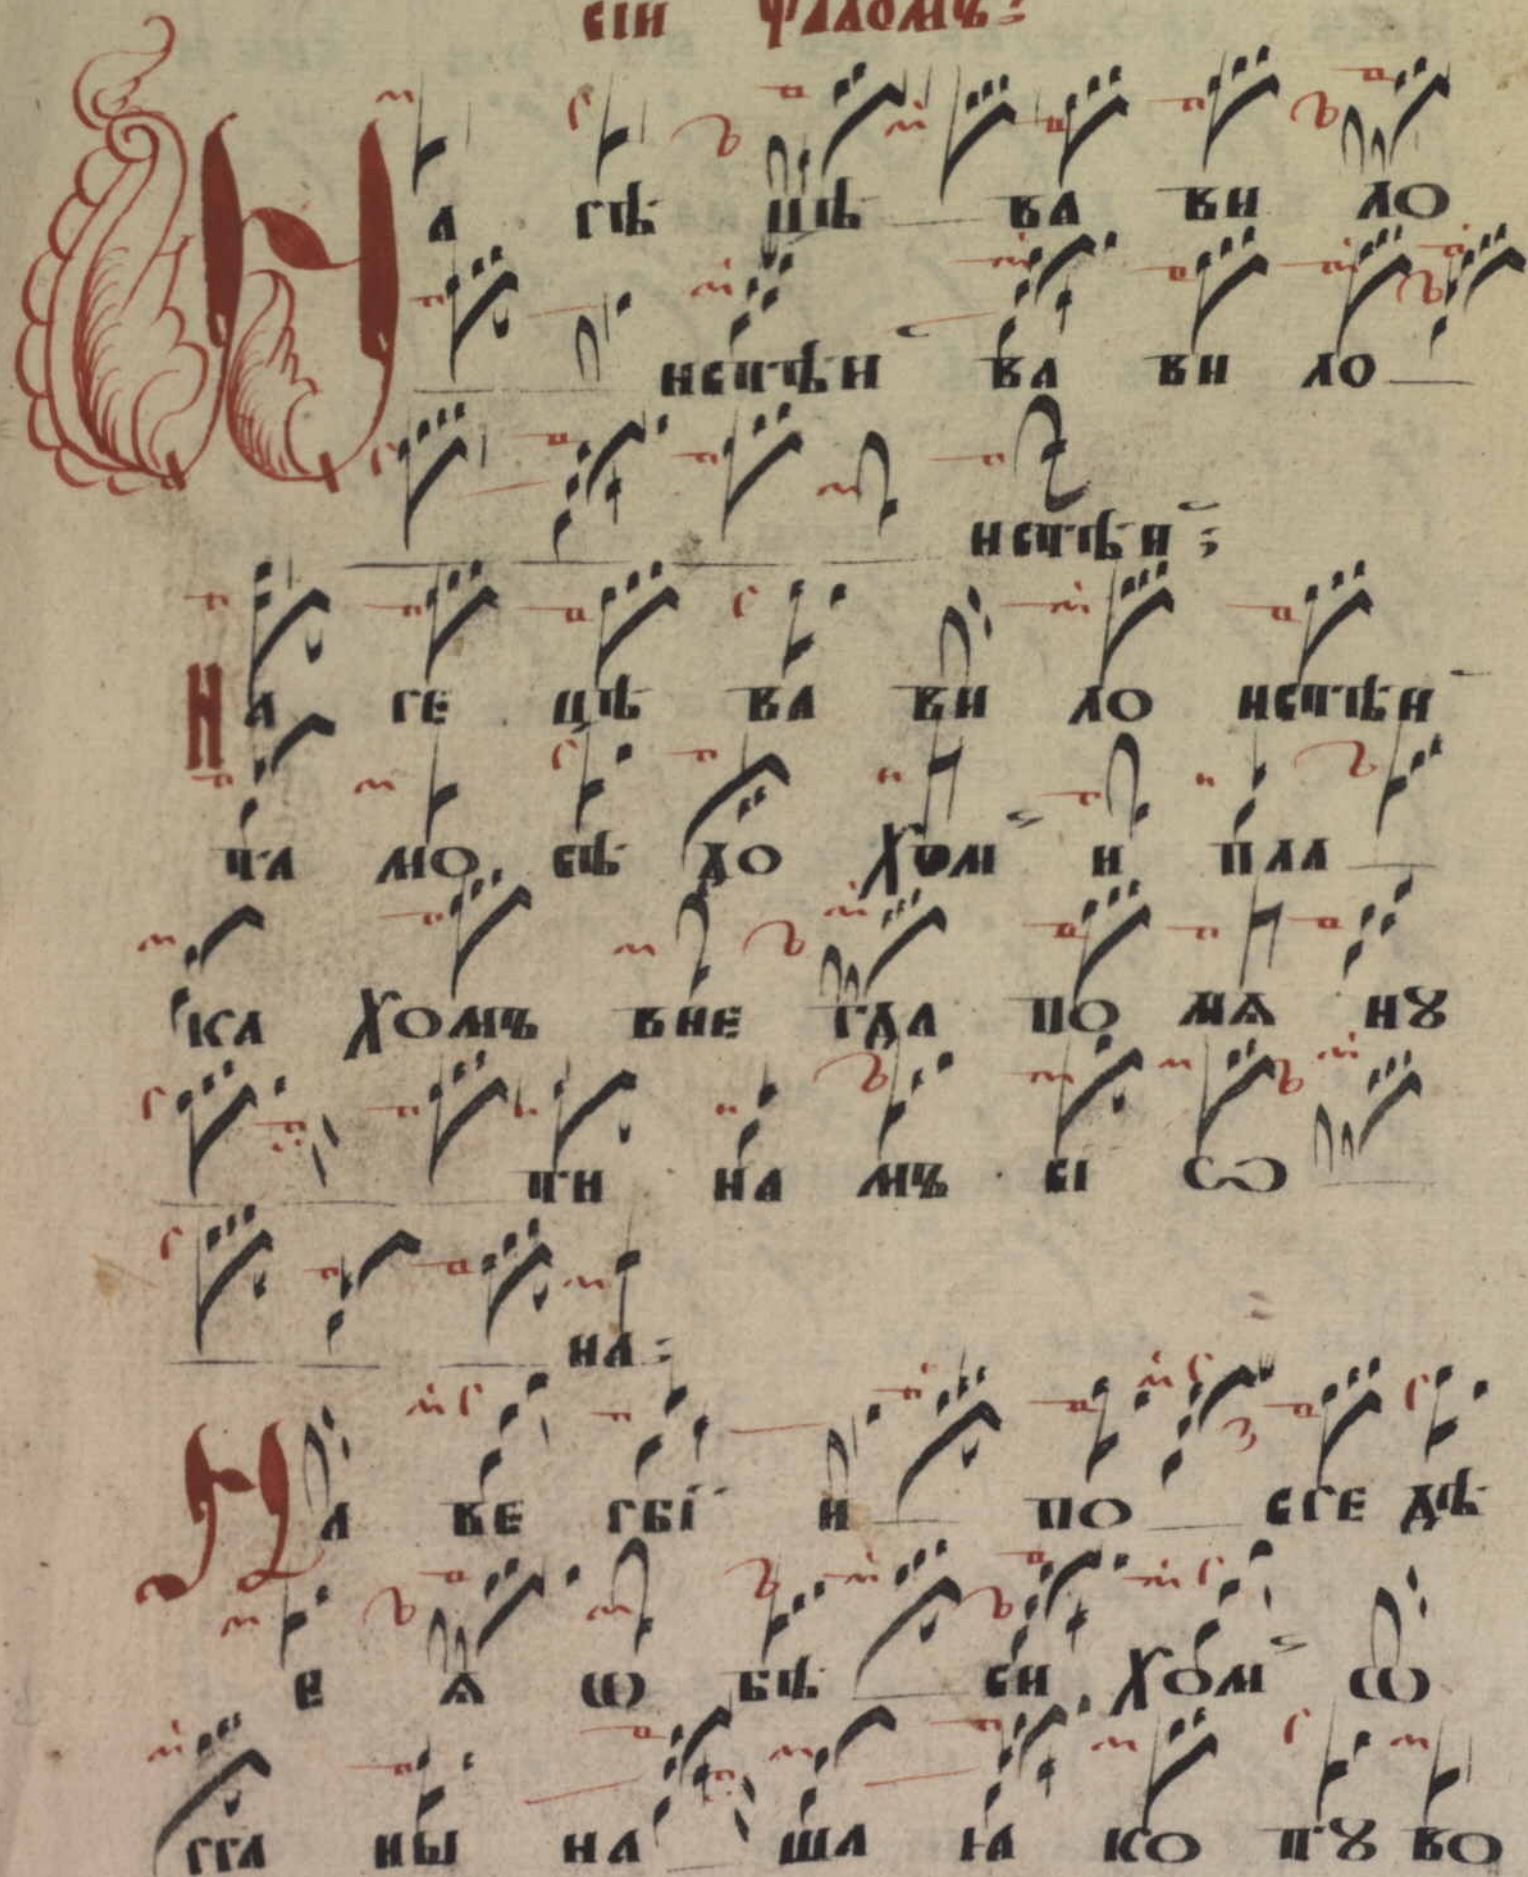 сїи ѱаломъ:
На рѣцѣ ва ви ло
нсцѣй ва ви ло
нсцѣй:
На ре цѣ ва ви ло нсцѣй
та мо сѣ до хом и пла
ка хомъ вне гда по мѧ нꙋ
ти на мъ сі ѡ
на:
На ве рбї и по сре дѣ
е ѧ ѡ бѣ си хом ѡ
рга ны на ша ꙗ ко тꙋ во